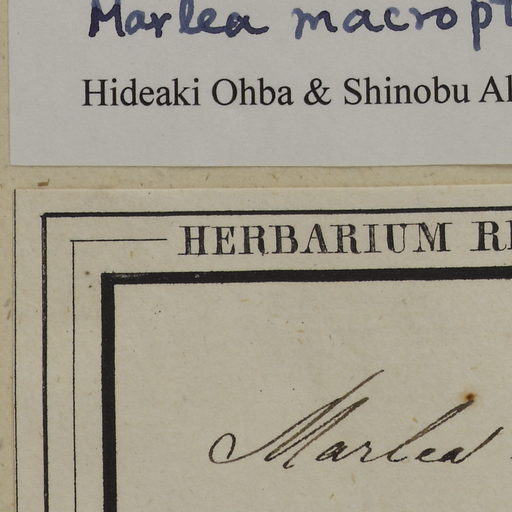 Marlea macropt
Hideaki Ohba & Shinobu Ak
HERBARIUM RE
Marlea